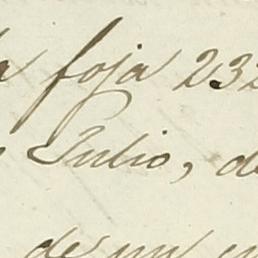 a foja 232
Julio, de
de un